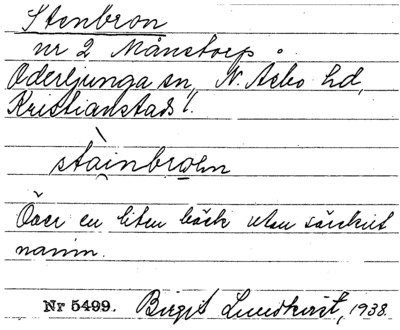 Stenbron
nr 2 Månstorp.
Oderljunga sn, N. Åsbo hd,
Kristianstads l.
stàinbroen
Över en liten bäck utan särskilt
namn.
Nr 5499. Birgit Lundkvist, 1938.